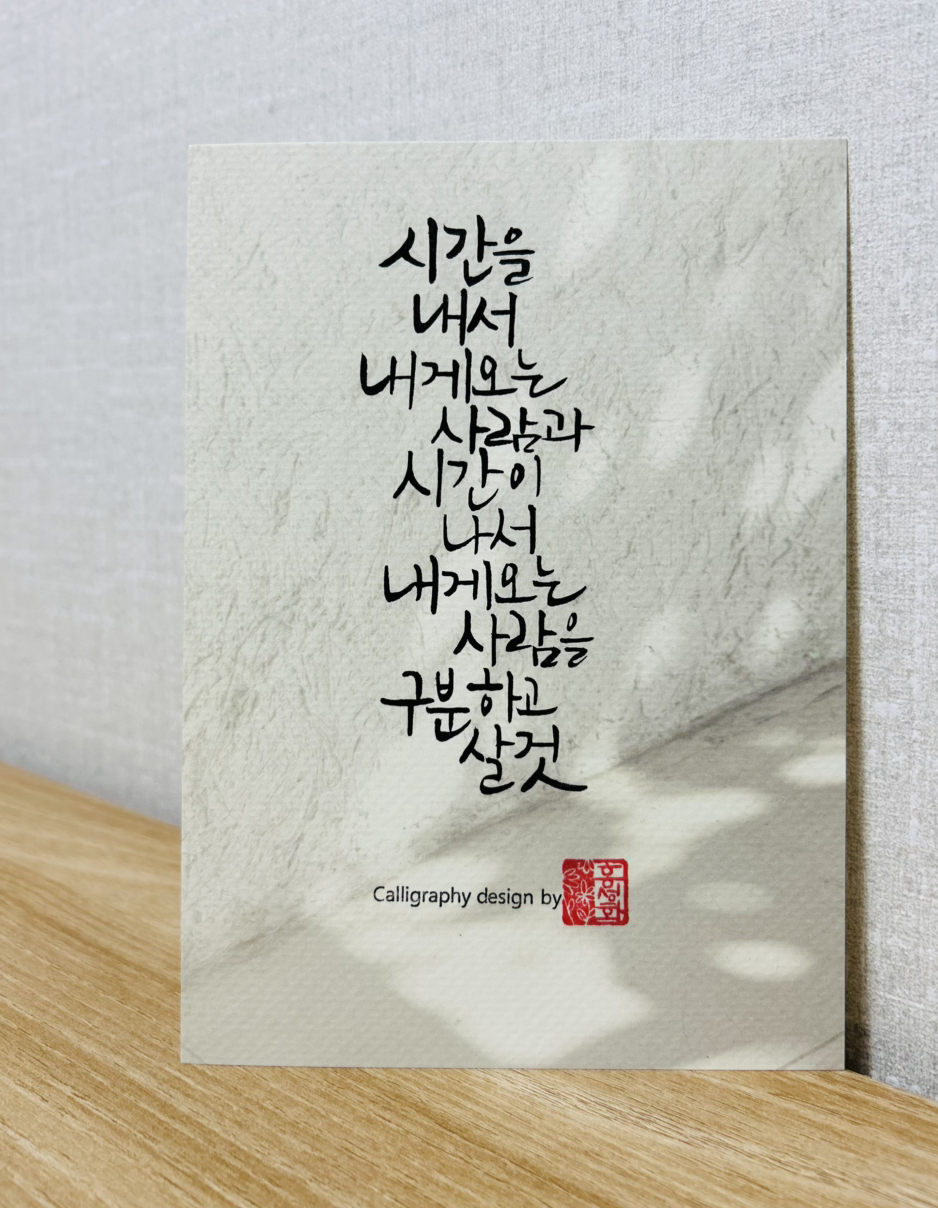 시간을
내서
내게오는
사람과
시간이
나서
내게오는
사람을
구분하고
살것
Calligraphy design by